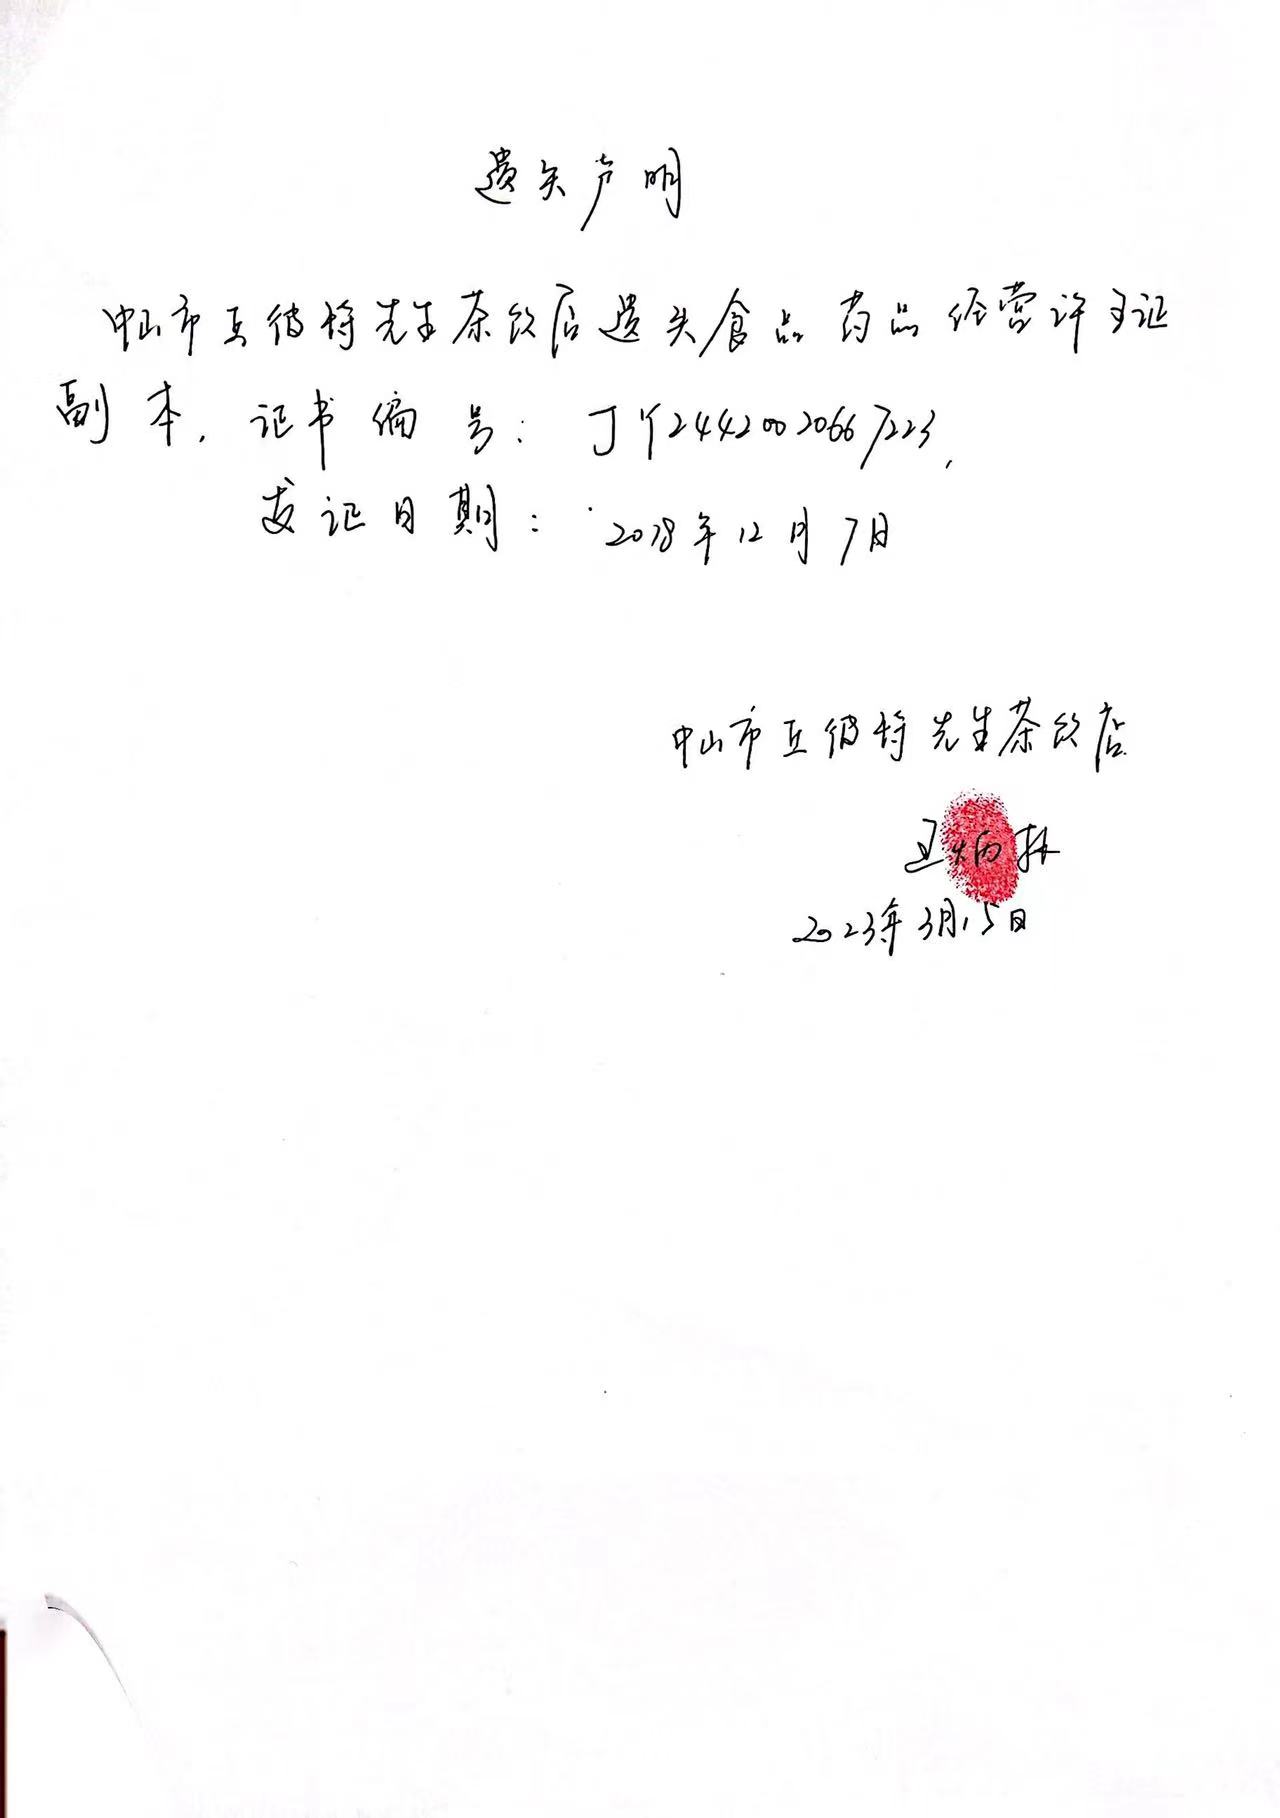 遗失声明
中山市丘彼特先生茶饮店遗失食品药品经营许可证
副本，证书编号：JY24420020667223，
发证日期：2018年12月7日
中山市丘彼特先生茶饮店
王炳林
2023年3月15日